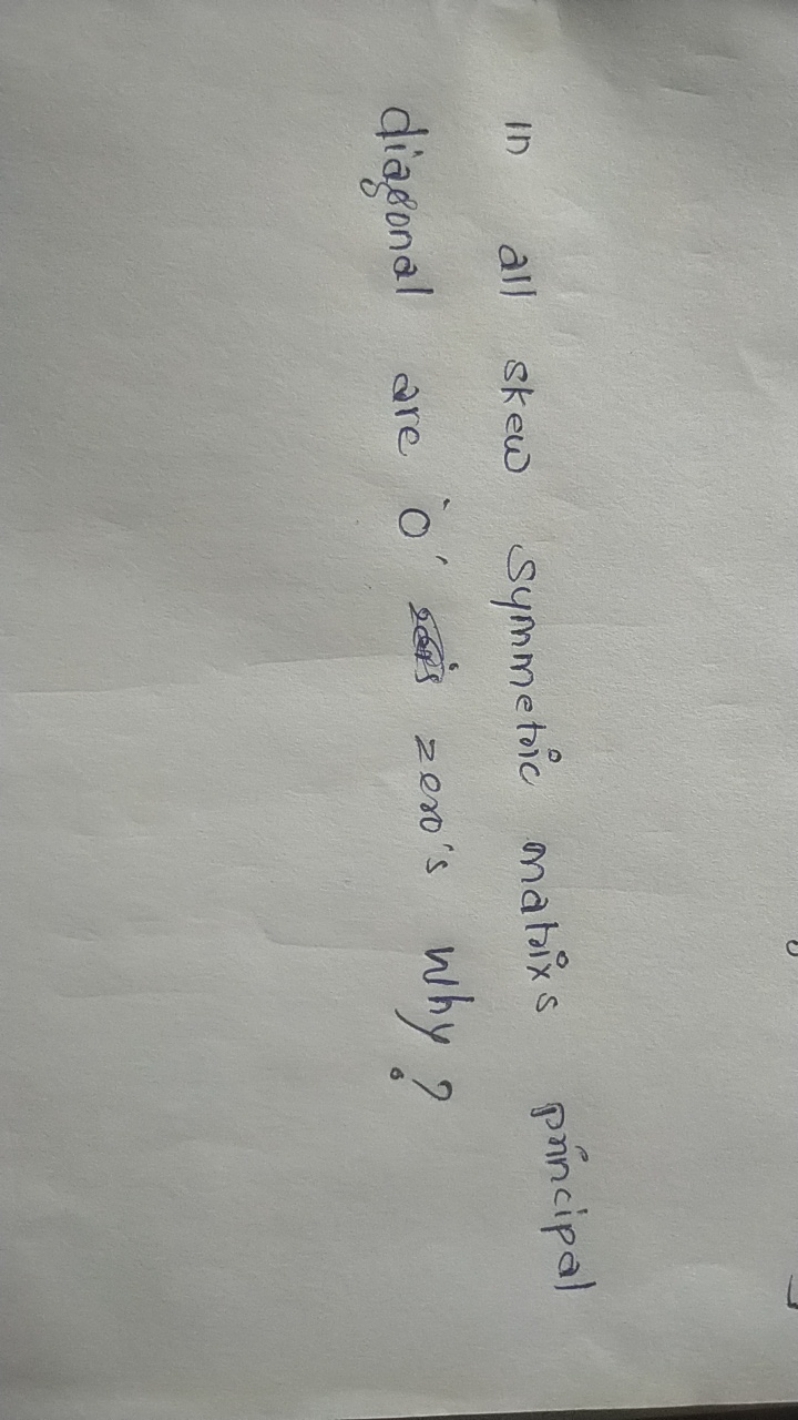 in all skew symmetric matrixs principal
diagonal are '0' zero's why?